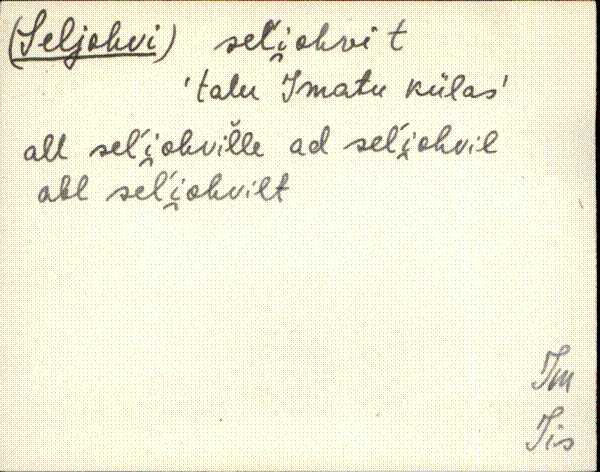 (Seljohvi) seĺi̯ohvit
'talu Imatu külas'
all seĺi̯ohviĺle ad seĺi̯ohvil
abl seĺi̯ohvilt
Im
Jis